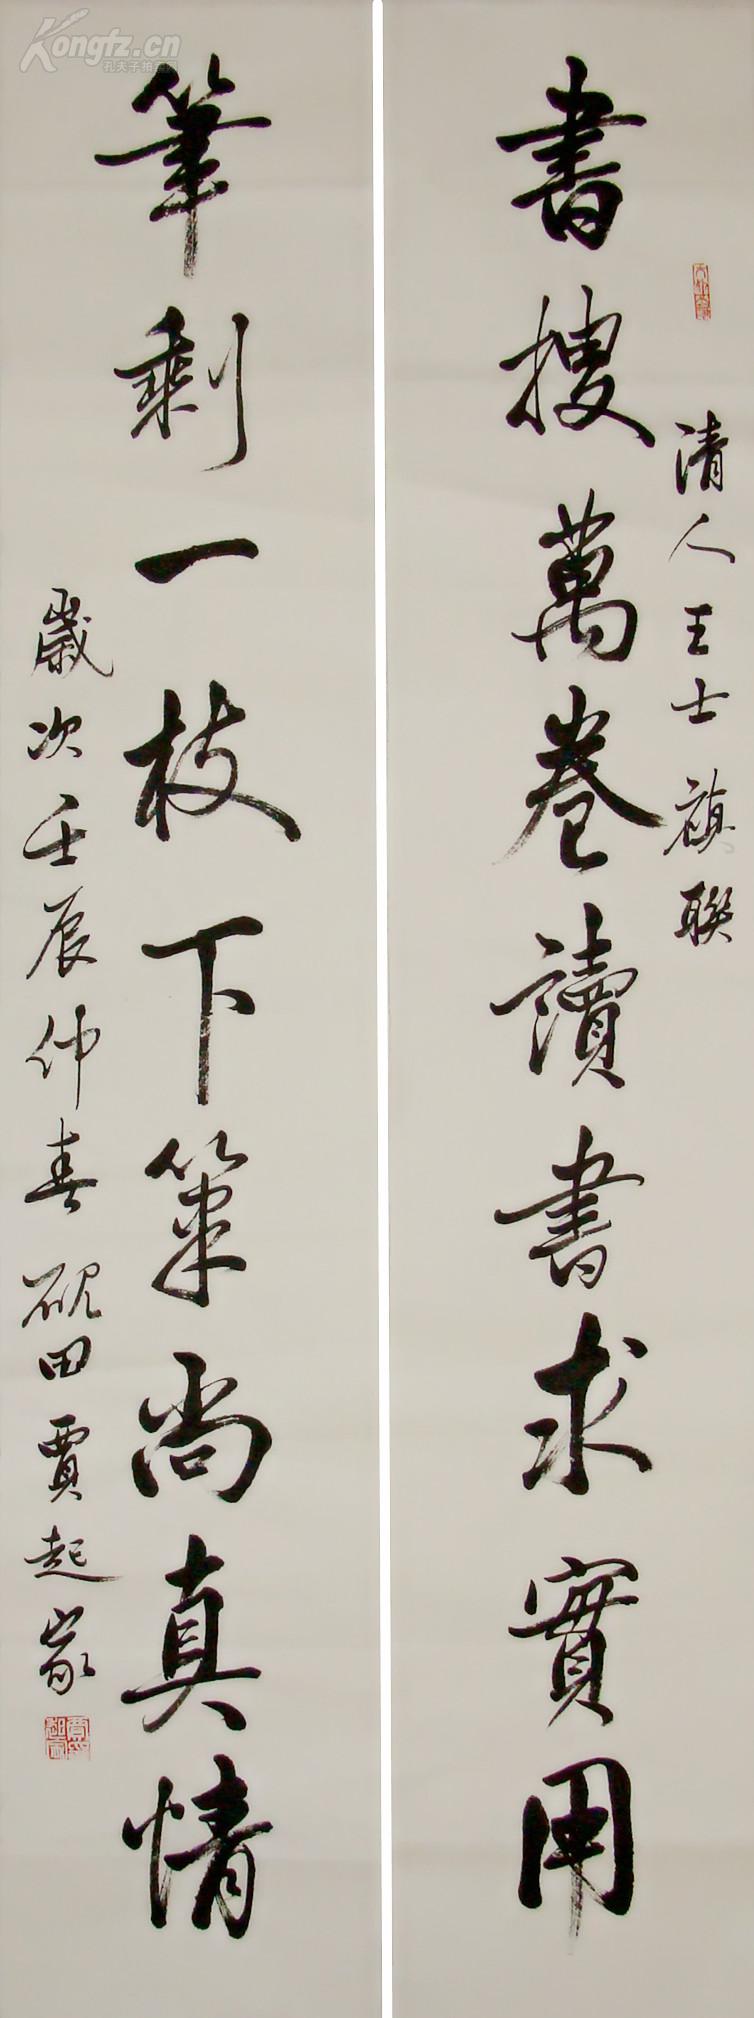 清人王士禛聯
書搜萬卷讀書求實用
筆剩一枝下筆尚真情
歲次壬辰仲春硯田賈起家
Kongfz.cn
孔夫子拍卖网